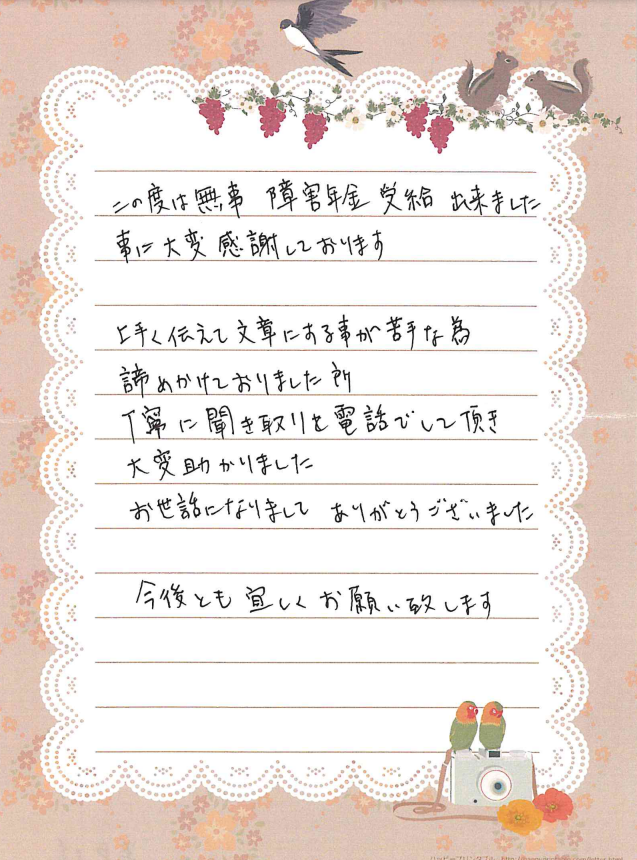 この度は無事 障害年金 受給 出来ました
事に大変感謝しております
上手く伝えて文章にする事が苦手な為
諦めかけておりました所
丁寧に聞き取りを電話でして頂き
大変助かりました
お世話になりまして ありがとうございました
今後とも宜しくお願い致します